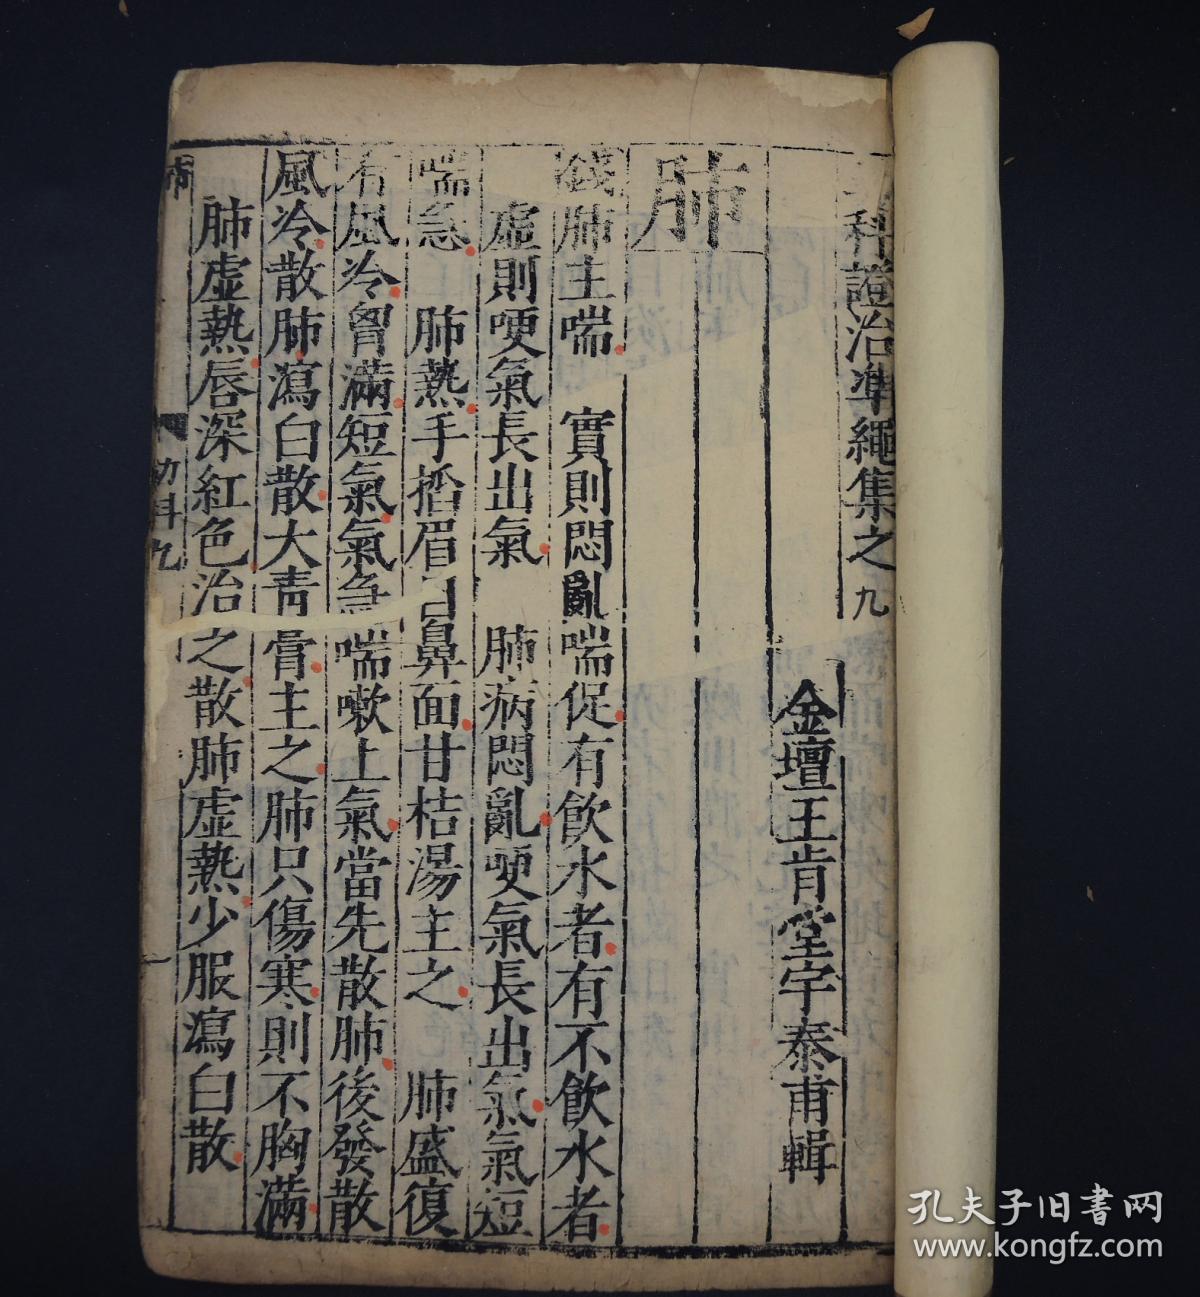 科證治準繩集之九
金壇王肯堂宇泰甫輯
肺
錢肺主喘 實則悶亂喘促有飲水者有不飲水者
虛則哽氣長出氣 肺病悶亂哽氣長出氣氣短
喘急 肺熱手掐眉目鼻面甘桔湯主之 肺盛復
有風冷胷滿短氣氣急喘嗽上氣當先散肺後發散
風冷散肺瀉白散大青膏主之肺只傷寒則不胸滿
肺虛熱唇深紅色治之散肺虛熱少服瀉白散
肺
幼科九
孔夫子旧书网
www.kongfz.com